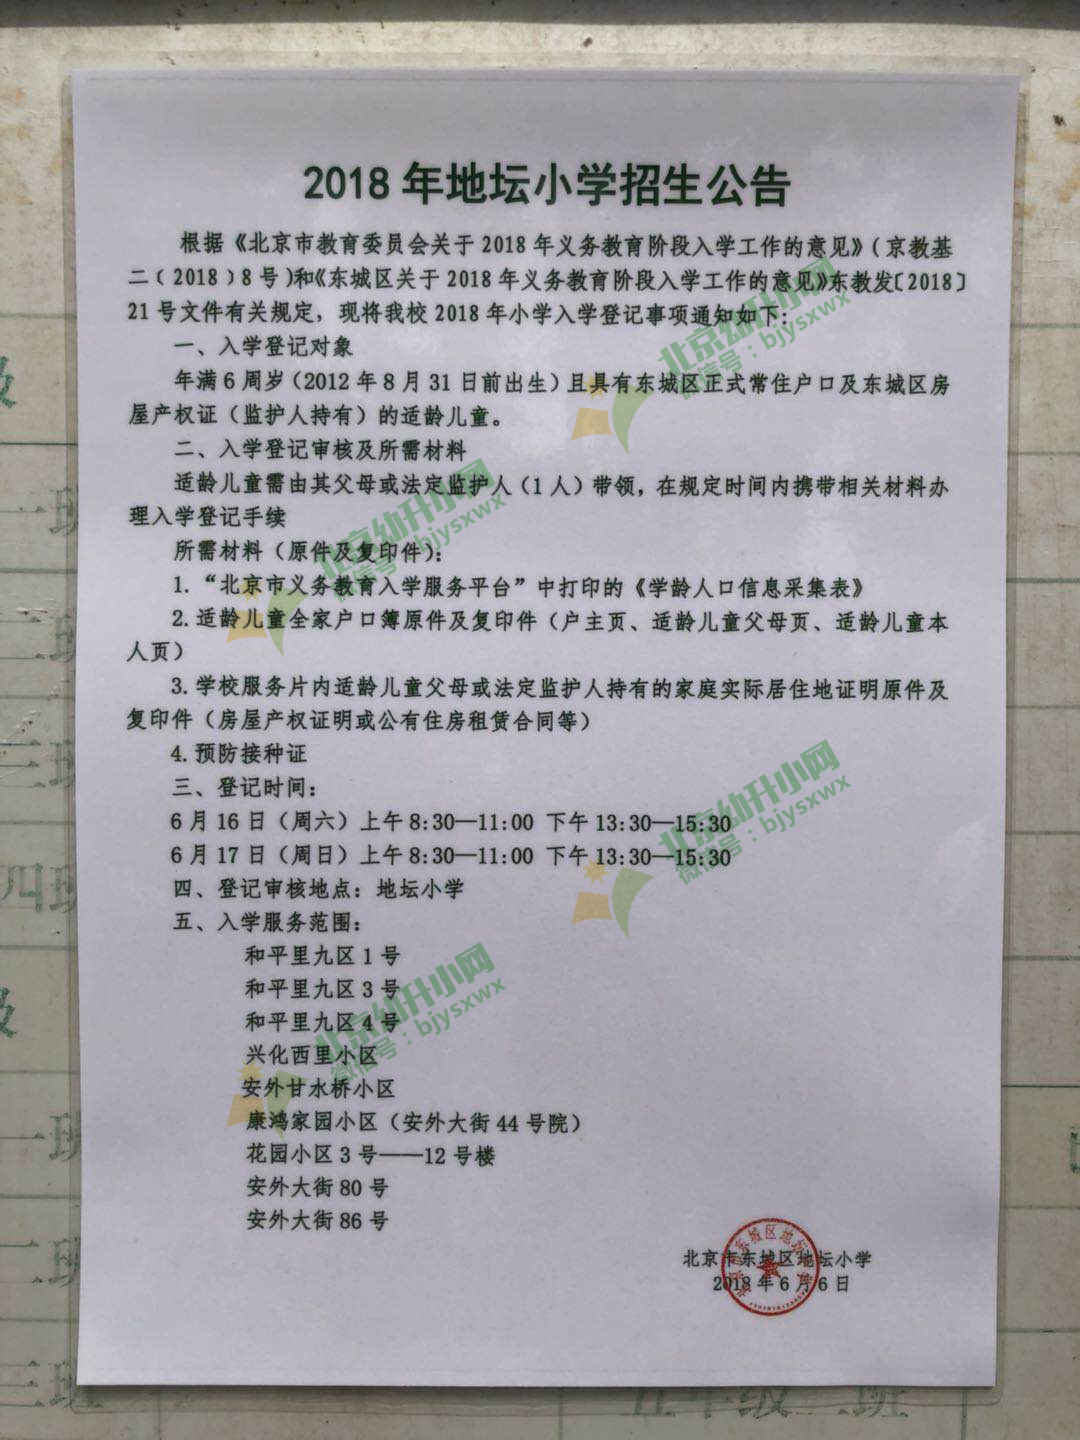 2018年地坛小学招生公告
根据《北京市教育委员会关于2018年义务教育阶段入学工作的意见》(京教基
二〔2018〕8号)和《东城区关于2018年义务教育阶段入学工作的意见》东教发〔2018〕
21号文件有关规定，现将我校2018年小学入学登记事项通知如下：
一、入学登记对象
年满6周岁（2012年8月31日前出生）且具有东城区正式常住户口及东城区房
屋产权证（监护人持有）的适龄儿童。
二、入学登记审核及所需材料
适龄儿童需由其父母或法定监护人（1人）带领，在规定时间内携带相关材料办
理入学登记手续
所需材料（原件及复印件）：
1.“北京市义务教育入学服务平台”中打印的《学龄人口信息采集表》
2.适龄儿童全家户口簿原件及复印件（户主页、适龄儿童父母页、适龄儿童本
人页）
3.学校服务片内适龄儿童父母或法定监护人持有的家庭实际居住地证明原件及
复印件（房屋产权证明或公有住房租赁合同等）
4.预防接种证
三、登记时间：
6月16日（周六）上午8:30—11:00 下午13:30—15:30
6月17日（周日）上午8:30—11:00 下午13:30—15:30
四、登记审核地点：地坛小学
五、入学服务范围：
和平里九区1号
和平里九区3号
和平里九区4号
兴化西里小区
安外甘水桥小区
康鸿家园小区（安外大街44号院）
花园小区3号——12号楼
安外大街80号
安外大街86号
北京市东城区地坛小学
2018年6月6日
北京幼升小网
微信号：bjysxwx
北京幼升小网
微信号：bjysxwx
北京幼升小网
微信号：bjysxwx
北京幼升小网
微信号：bjysxwx
级
一班
二班
三班
四班
级
一班
二班
三班